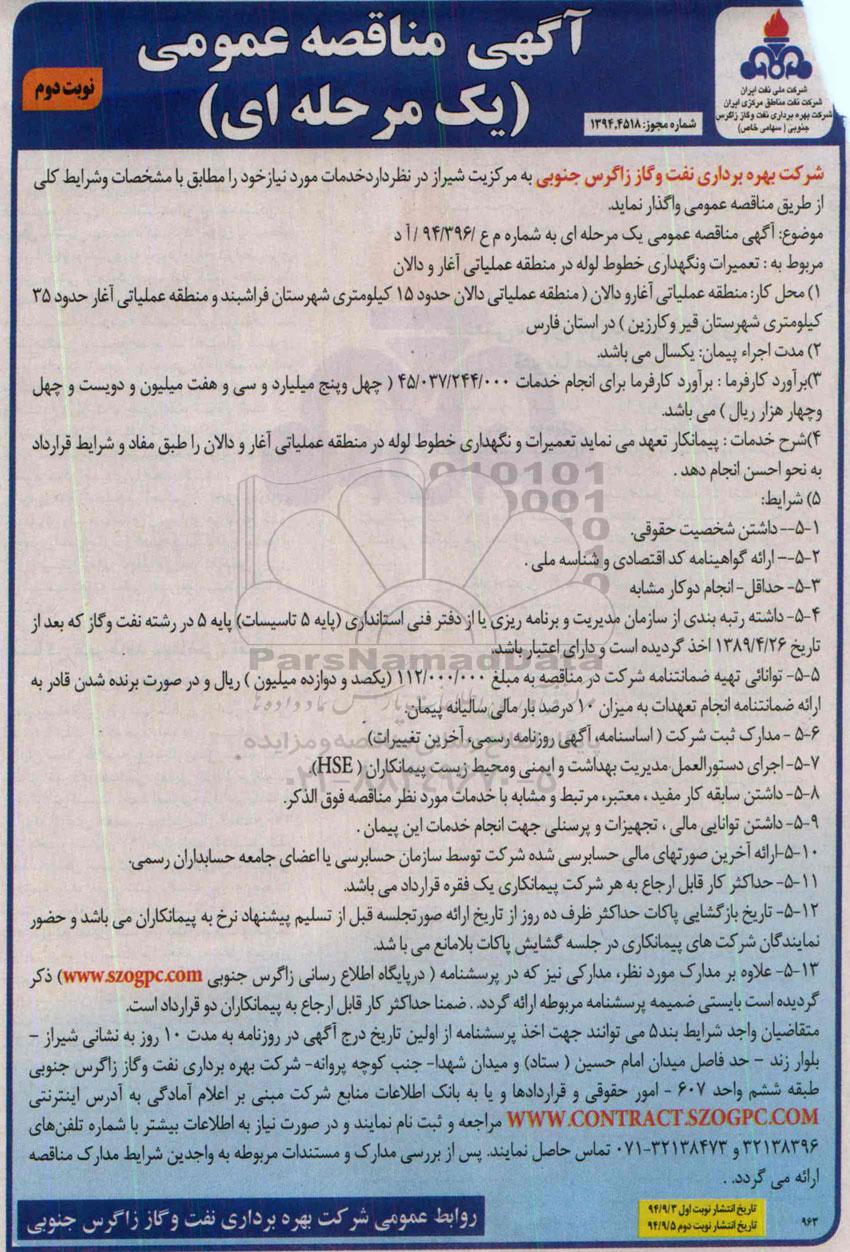 آگهی مناقصه عمومی
(یک مرحله ای)
نوبت دوم
شرکت ملی نفت ایران
شرکت نفت مناطق مرکزی ایران
شرکت بهره برداری نفت وگاز زاگرس
جنوبی ( سهامی خاص)
شماره مجوز: ۱۳۹۴.۴۵۱۸
شرکت بهره برداری نفت وگاز زاگرس جنوبی به مرکزیت شیراز در نظرداردخدمات مورد نیازخود را مطابق با مشخصات وشرایط کلی
از طریق مناقصه عمومی واگذار نماید.
موضوع: آگهی مناقصه عمومی یک مرحله ای به شماره م ع /۹۴/۳۹۶ / آ د
مربوط به : تعمیرات ونگهداری خطوط لوله در منطقه عملیاتی آغار و دالان
۱) محل کار: منطقه عملیاتی آغارو دالان ( منطقه عملیاتی دالان حدود ۱۵ کیلومتری شهرستان فراشبند و منطقه عملیاتی آغار حدود ۳۵
کیلومتری شهرستان قیر وکارزین ) در استان فارس
۲) مدت اجراء پیمان: یکسال می باشد.
۳)برآورد کارفرما : برآورد کارفرما برای انجام خدمات ۴۵/۰۳۷/۲۴۴/۰۰۰ ( چهل وپنج میلیارد و سی و هفت میلیون و دویست و چهل
وچهار هزار ریال ) می باشد.
۴)شرح خدمات : پیمانکار تعهد می نماید تعمیرات و نگهداری خطوط لوله در منطقه عملیاتی آغار و دالان را طبق مفاد و شرایط قرارداد
به نحو احسن انجام دهد .
۵) شرایط:
۵-۱-- داشتن شخصیت حقوقی.
۵-۲-– ارائه گواهینامه کد اقتصادی و شناسه ملی .
۵-۳- حداقل- انجام دوکار مشابه
۵-۴- داشته رتبه بندی از سازمان مدیریت و برنامه ریزی یا از دفتر فنی استانداری (پایه ۵ تاسیسات) پایه ۵ در رشته نفت وگاز که بعد از
تاریخ ۱۳۸۹/۴/۲۶ اخذ گردیده است و دارای اعتبار باشد.
۵-۵- توانائی تهیه ضمانتنامه شرکت در مناقصه به مبلغ ۱۱۲/۰۰۰/۰۰۰ (یکصد و دوازده میلیون ) ریال و در صورت برنده شدن قادر به
ارائه ضمانتنامه انجام تعهدات به میزان ۱۰ درصد بار مالی سالیانه پیمان.
۵-۶- مدارک ثبت شرکت ( اساسنامه، آگهی روزنامه رسمی، آخرین تغییرات)
۵-۷- اجرای دستورالعمل مدیریت بهداشت و ایمنی ومحیط زیست پیمانکاران ( HSE).
۵-۸- داشتن سابقه کار مفید ، معتبر، مرتبط و مشابه با خدمات مورد نظر مناقصه فوق الذکر.
۵-۹- داشتن توانایی مالی ، تجهیزات و پرسنلی جهت انجام خدمات این پیمان .
۵-۱۰-ارائه آخرین صورتهای مالی حسابرسی شده شرکت توسط سازمان حسابرسی یا اعضای جامعه حسابداران رسمی.
۵-۱۱- حداکثر کار قابل ارجاع به هر شرکت پیمانکاری یک فقره قرارداد می باشد.
۵-۱۲- تاریخ بازگشایی پاکات حداکثر ظرف ده روز از تاریخ ارائه صورتجلسه قبل از تسلیم پیشنهاد نرخ به پیمانکاران می باشد و حضور
نمایندگان شرکت های پیمانکاری در جلسه گشایش پاکات بلامانع می با شد.
۵-۱۳- علاوه بر مدارک مورد نظر، مدارکی نیز که در پرسشنامه ( درپایگاه اطلاع رسانی زاگرس جنوبی www.szogpc.com) ذکر
گردیده است بایستی ضمیمه پرسشنامه مربوطه ارائه گردد. . ضمنا حداکثر کار قابل ارجاع به پیمانکاران دو قرارداد است.
متقاضیان واجد شرایط بند۵ می توانند جهت اخذ پرسشنامه از اولین تاریخ درج آگهی در روزنامه به مدت ۱۰ روز به نشانی شیراز –
بلوار زند – حد فاصل میدان امام حسین ( ستاد) و میدان شهدا- جنب کوچه پروانه- شرکت بهره برداری نفت وگاز زاگرس جنوبی
طبقه ششم واحد ۶۰۷ - امور حقوقی و قراردادها و یا به بانک اطلاعات منابع شرکت مبنی بر اعلام آمادگی به آدرس اینترنتی
WWW.CONTRACT.SZOGPC.COM مراجعه و ثبت نام نمایند و در صورت نیاز به اطلاعات بیشتر با شماره تلفن‌های
۳۲۱۳۸۳۹۶ و ۳۲۱۳۸۴۷۳-۰۷۱ تماس حاصل نمایند. پس از بررسی مدارک و مستندات مربوطه به واجدین شرایط مدارک مناقصه
ارائه می گردد. .
تاریخ انتشار نوبت اول ۹۴/۹/۳
تاریخ انتشار نوبت دوم ۹۴/۹/۵
۹۶۳
روابط عمومی شرکت بهره برداری نفت وگاز زاگرس جنوبی
ParsNamadData